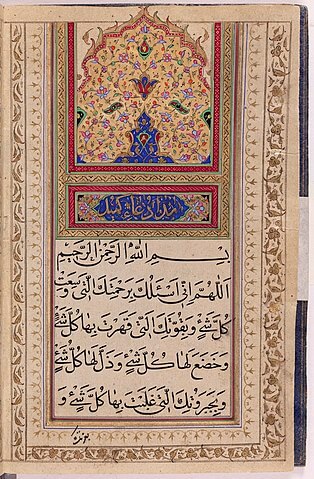 هذا دعاء كميل
بِسْمِ اللّٰهِ الرَّحْمٰنِ الرَّحِيمِ
اَللّٰهُمَّ اِنّٖي اَسْئَلُكَ بِرَحْمَتِكَ الَّتٖي وَسِعَتْ
كُلَّ شَيْءٍ وَبِقُوَّتِكَ الَّتٖي قَهَرْتَ بِهَا كُلَّ شَيْءٍ
وَخَضَعَ لَهَا كُلُّ شَيْءٍ وَذَلَّ لَهَا كُلُّ شَيْءٍ
وَبِجَبَرُوتِكَ الَّتٖي غَلَبْتَ بِهَا كُلَّ شَيْءٍ وَ